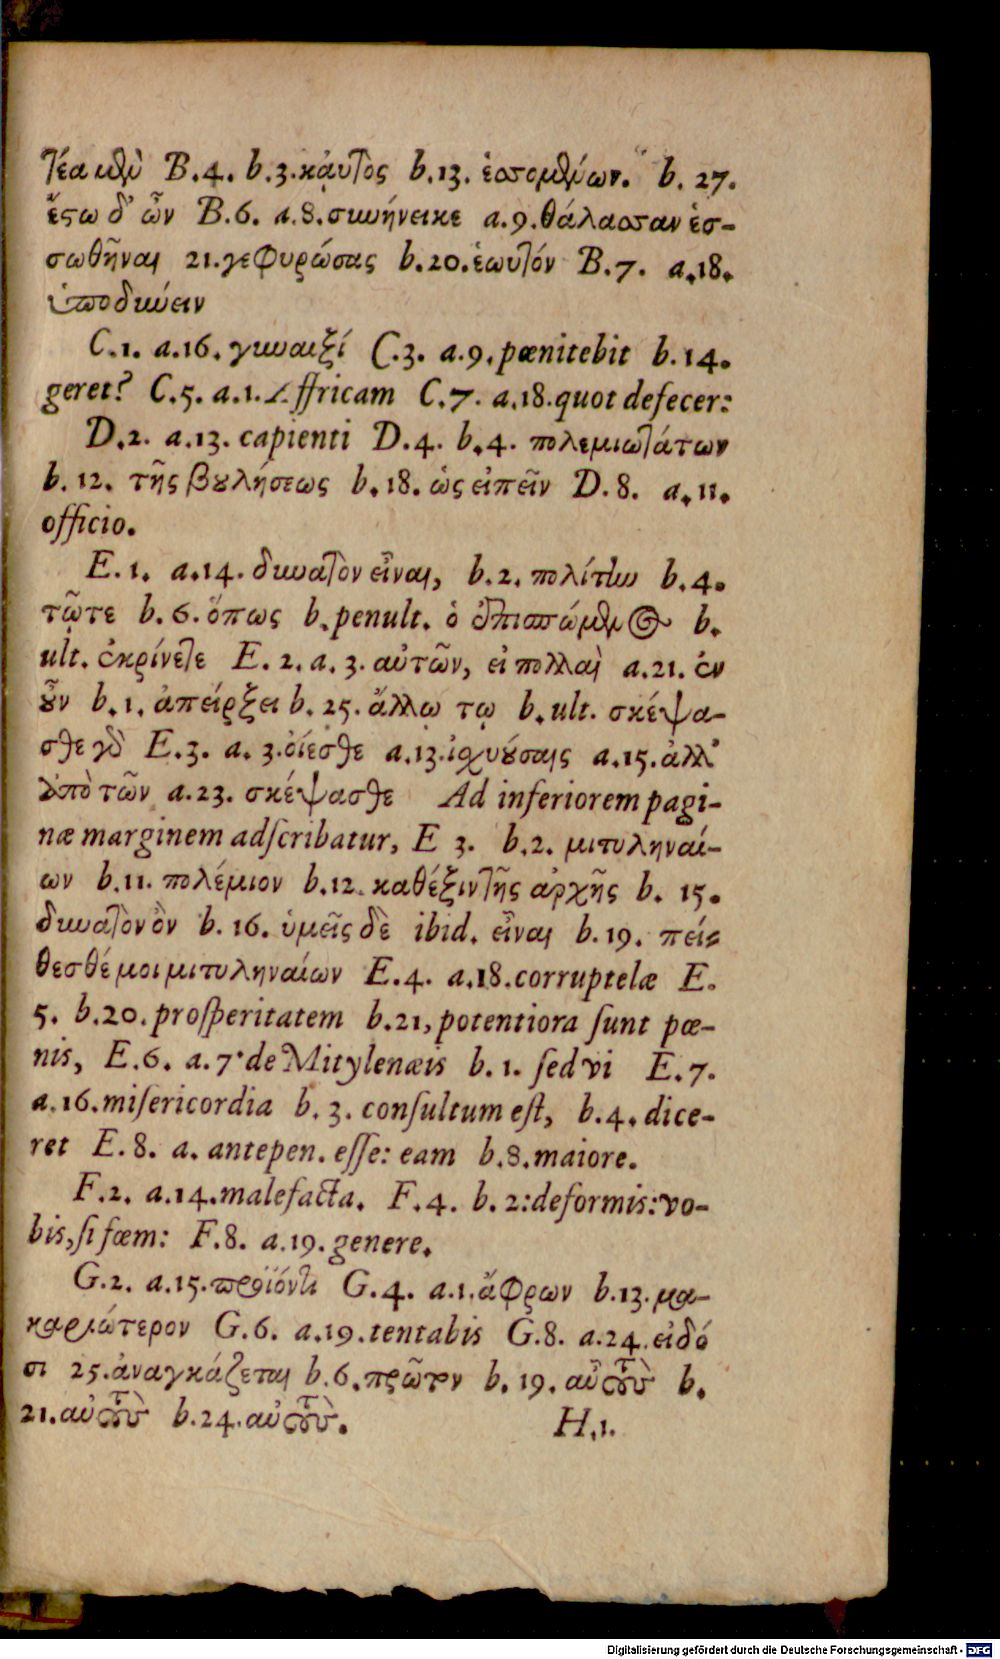 τέα μὲν B.4. b.3.καὐτὸς b.13. ἑσσομένων. b. 27.
ἔστω δ' ὦν B.6. a.8.συνήνεικε a.9.θάλασσαν ἐσ-
σωθῆναι 21.γεφυρώσας b.20.ἑωυτόν B.7. a.18.
ὑποδύνειν
C.1. a.16. γυναιξί C.3. a.9.pœnitebit b.14.
geret? C.5. a.1. Affricam C.7. a.18.quot defecer:
D.2. a.13. capienti D.4. b.4. πολεμιωτάτων
b.12. τῆς βουλήσεως b.18. ὡς εἰπεῖν D.8. a.11.
officio.
E.1. a.14. δυνατὸν εἶναι, b.2. πολίτην b.4.
τῷτε b.6. ὅπως b.penult. ὁ ἐπισπώμενος b.
ult. ἐκρίνετε E.2. a.3. αὐτῶν, εἰ πολλαὶ a.21. ἐν
οὖν b.1. ἀπείρξει b.25. ἄλλῳ τῳ b.ult. σκέψα-
σθε γὰρ E.3. a.3.οἴεσθε a.13.ἰσχυούσαις a.15.ἀλλ'
ἀπὸ τῶν a.23. σκέψασθε Ad inferiorem pagi-
næ marginem adſcribatur, E 3. b.2. μιτυληναί-
ων b.11. πολέμιον b.12. καθέξιν τῆς ἀρχῆς b.15.
δυνατὸν ὂν b.16. ὑμεῖς δὲ ibid. εἶναι b.19. πεί-
θεσθέ μοι μιτυληναίων E.4. a.18.corruptelæ E.
5. b.20.proſperitatem b.21,potentiora ſunt pœ-
nis, E.6. a.7.de Mitylenæis b.1. ſed vi E.7.
a.16.miſericordia b.3. conſultum eſt, b.4. dice-
ret E.8. a. antepen. eſſe: eam b.8.maiore.
F.2. a.14.malefacta. F.4. b.2:deformis:vo-
bis,ſi fœm: F.8. a.19.genere.
G.2. a.15.προϊόντι G.4. a.1.ἄφρων b.13.μα-
καριώτερον G.6. a.19.tentabis G.8. a.24.εἰδό
σι 25.ἀναγκάζεται b.6.πρῶτον b.19. αὖ τοὺς b.
21.αὖ τοὺς b.24.αὖ τοὺς.
H.1.
Digitalisierung gefördert durch die Deutsche Forschungsgemeinschaft - DFG